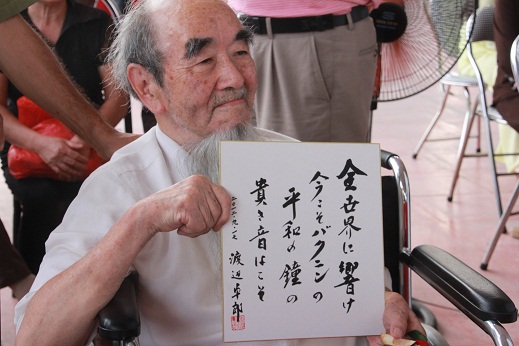 全世界に響け
今こそバクニンの
平和の鐘の
貴き音はこそ
渡辺卓郎